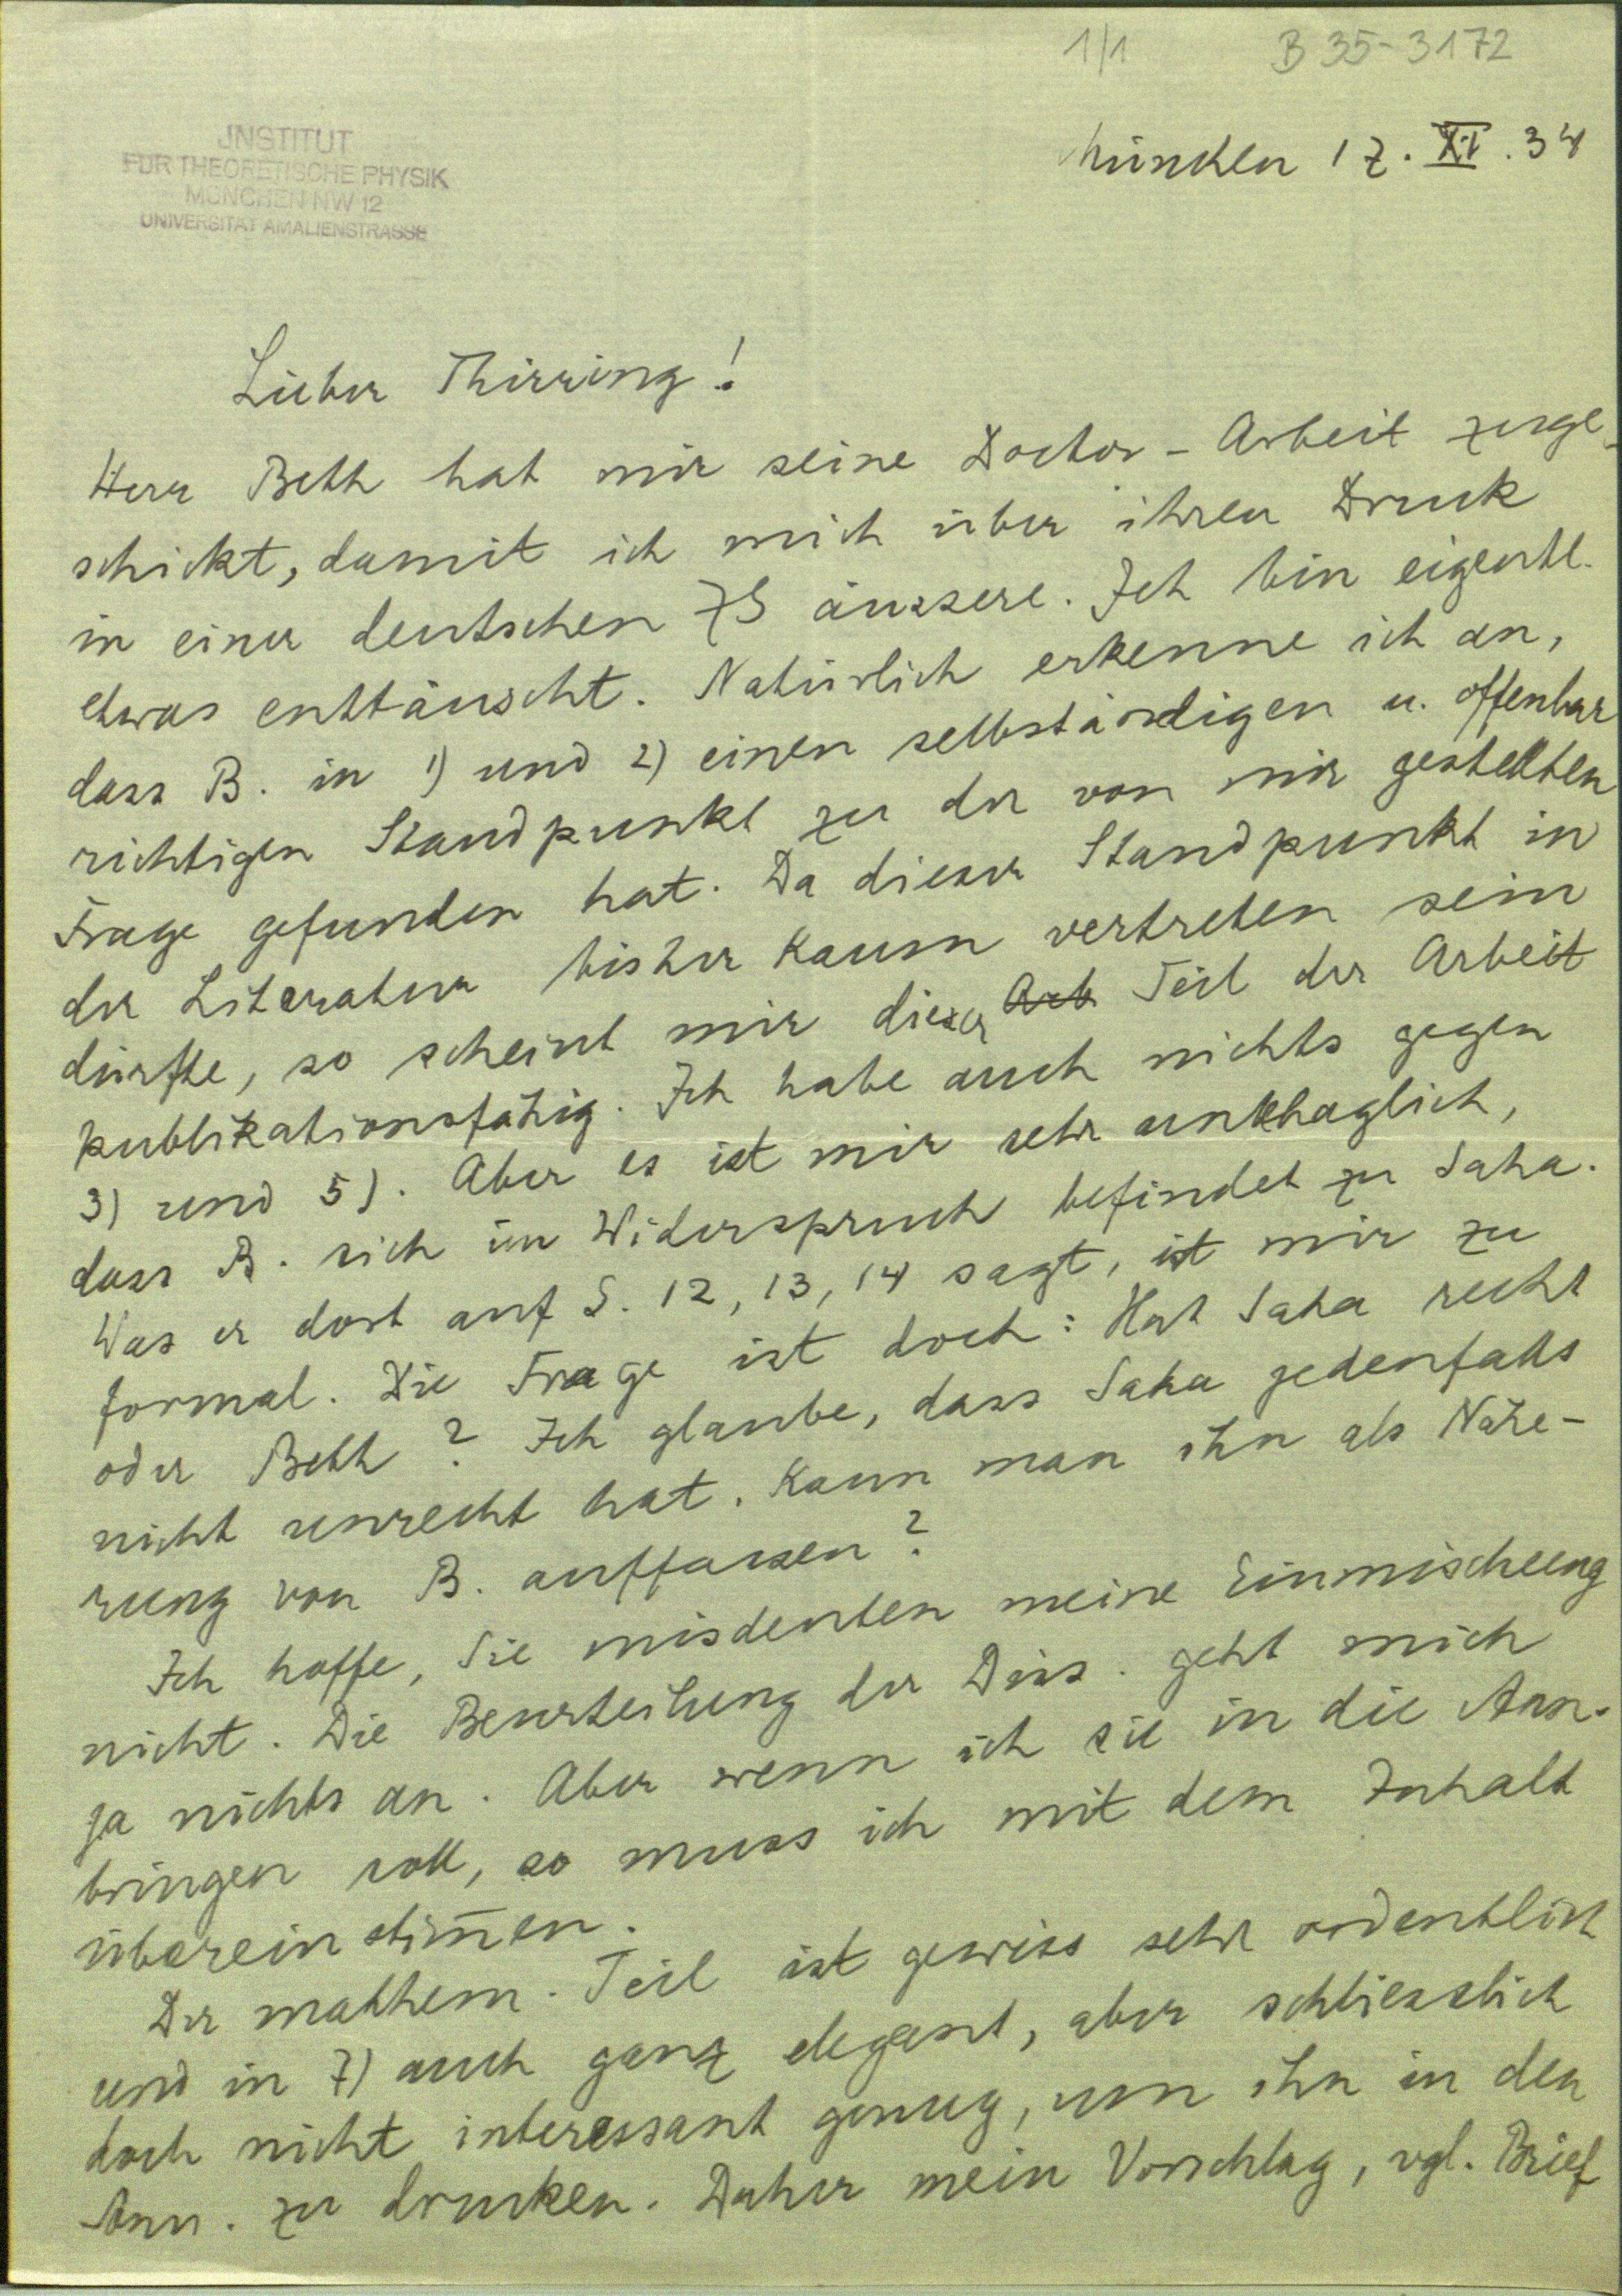 1/1 B 35-3172
JNSTITUT
FÜR THEORETISCHE PHYSIK
MÜNCHEN NW 12
UNIVERSITÄT AMALIENSTRASSE
München 17. XI. 34
Lieber Thirring!
Herr Beth hat mir seine Doctor-Arbeit zuge-
schickt, damit ich mich über ihren Druck
in einer deutschen ZS äussere. Ich bin eigentl.
etwas enttäuscht. Natürlich erkenne ich an,
dass B. in 1) und 2) einen selbständigen u. offenbar
richtigen Standpunkt zu der von mir gestellten
Frage gefunden hat. Da dieser Standpunkt in
der Literatur bisher kaum vertreten sein
dürfte, so scheint mir dieser Arb Teil der Arbeit
publikationsfähig. Ich habe auch nichts gegen
3) und 5). Aber es ist mir sehr unbehaglich,
dass B. sich im Widerspruch befindet zu Saha.
Was er dort auf S. 12, 13, 14 sagt, ist mir zu
formal. Die Frage ist doch: Hat Saha recht
oder Beth? Ich glaube, dass Saha jedenfalls
nicht unrecht hat. Kann man ihn als Nähe-
rung von B. auffassen?
Ich hoffe, Sie misdeuten meine Einmischung
nicht. Die Beurteilung der Diss. geht mich
ja nichts an. Aber wenn ich sie in die Ann.
bringen soll, so muss ich mit dem Inhalt
übereinstim̅en.
Der mathem. Teil ist gewiss sehr ordentlich
und in 7) auch ganz elegant, aber schliesslich
doch nicht interessant genug, um ihn in den
Ann. zu drucken. Daher mein Vorschlag, vgl. Brief